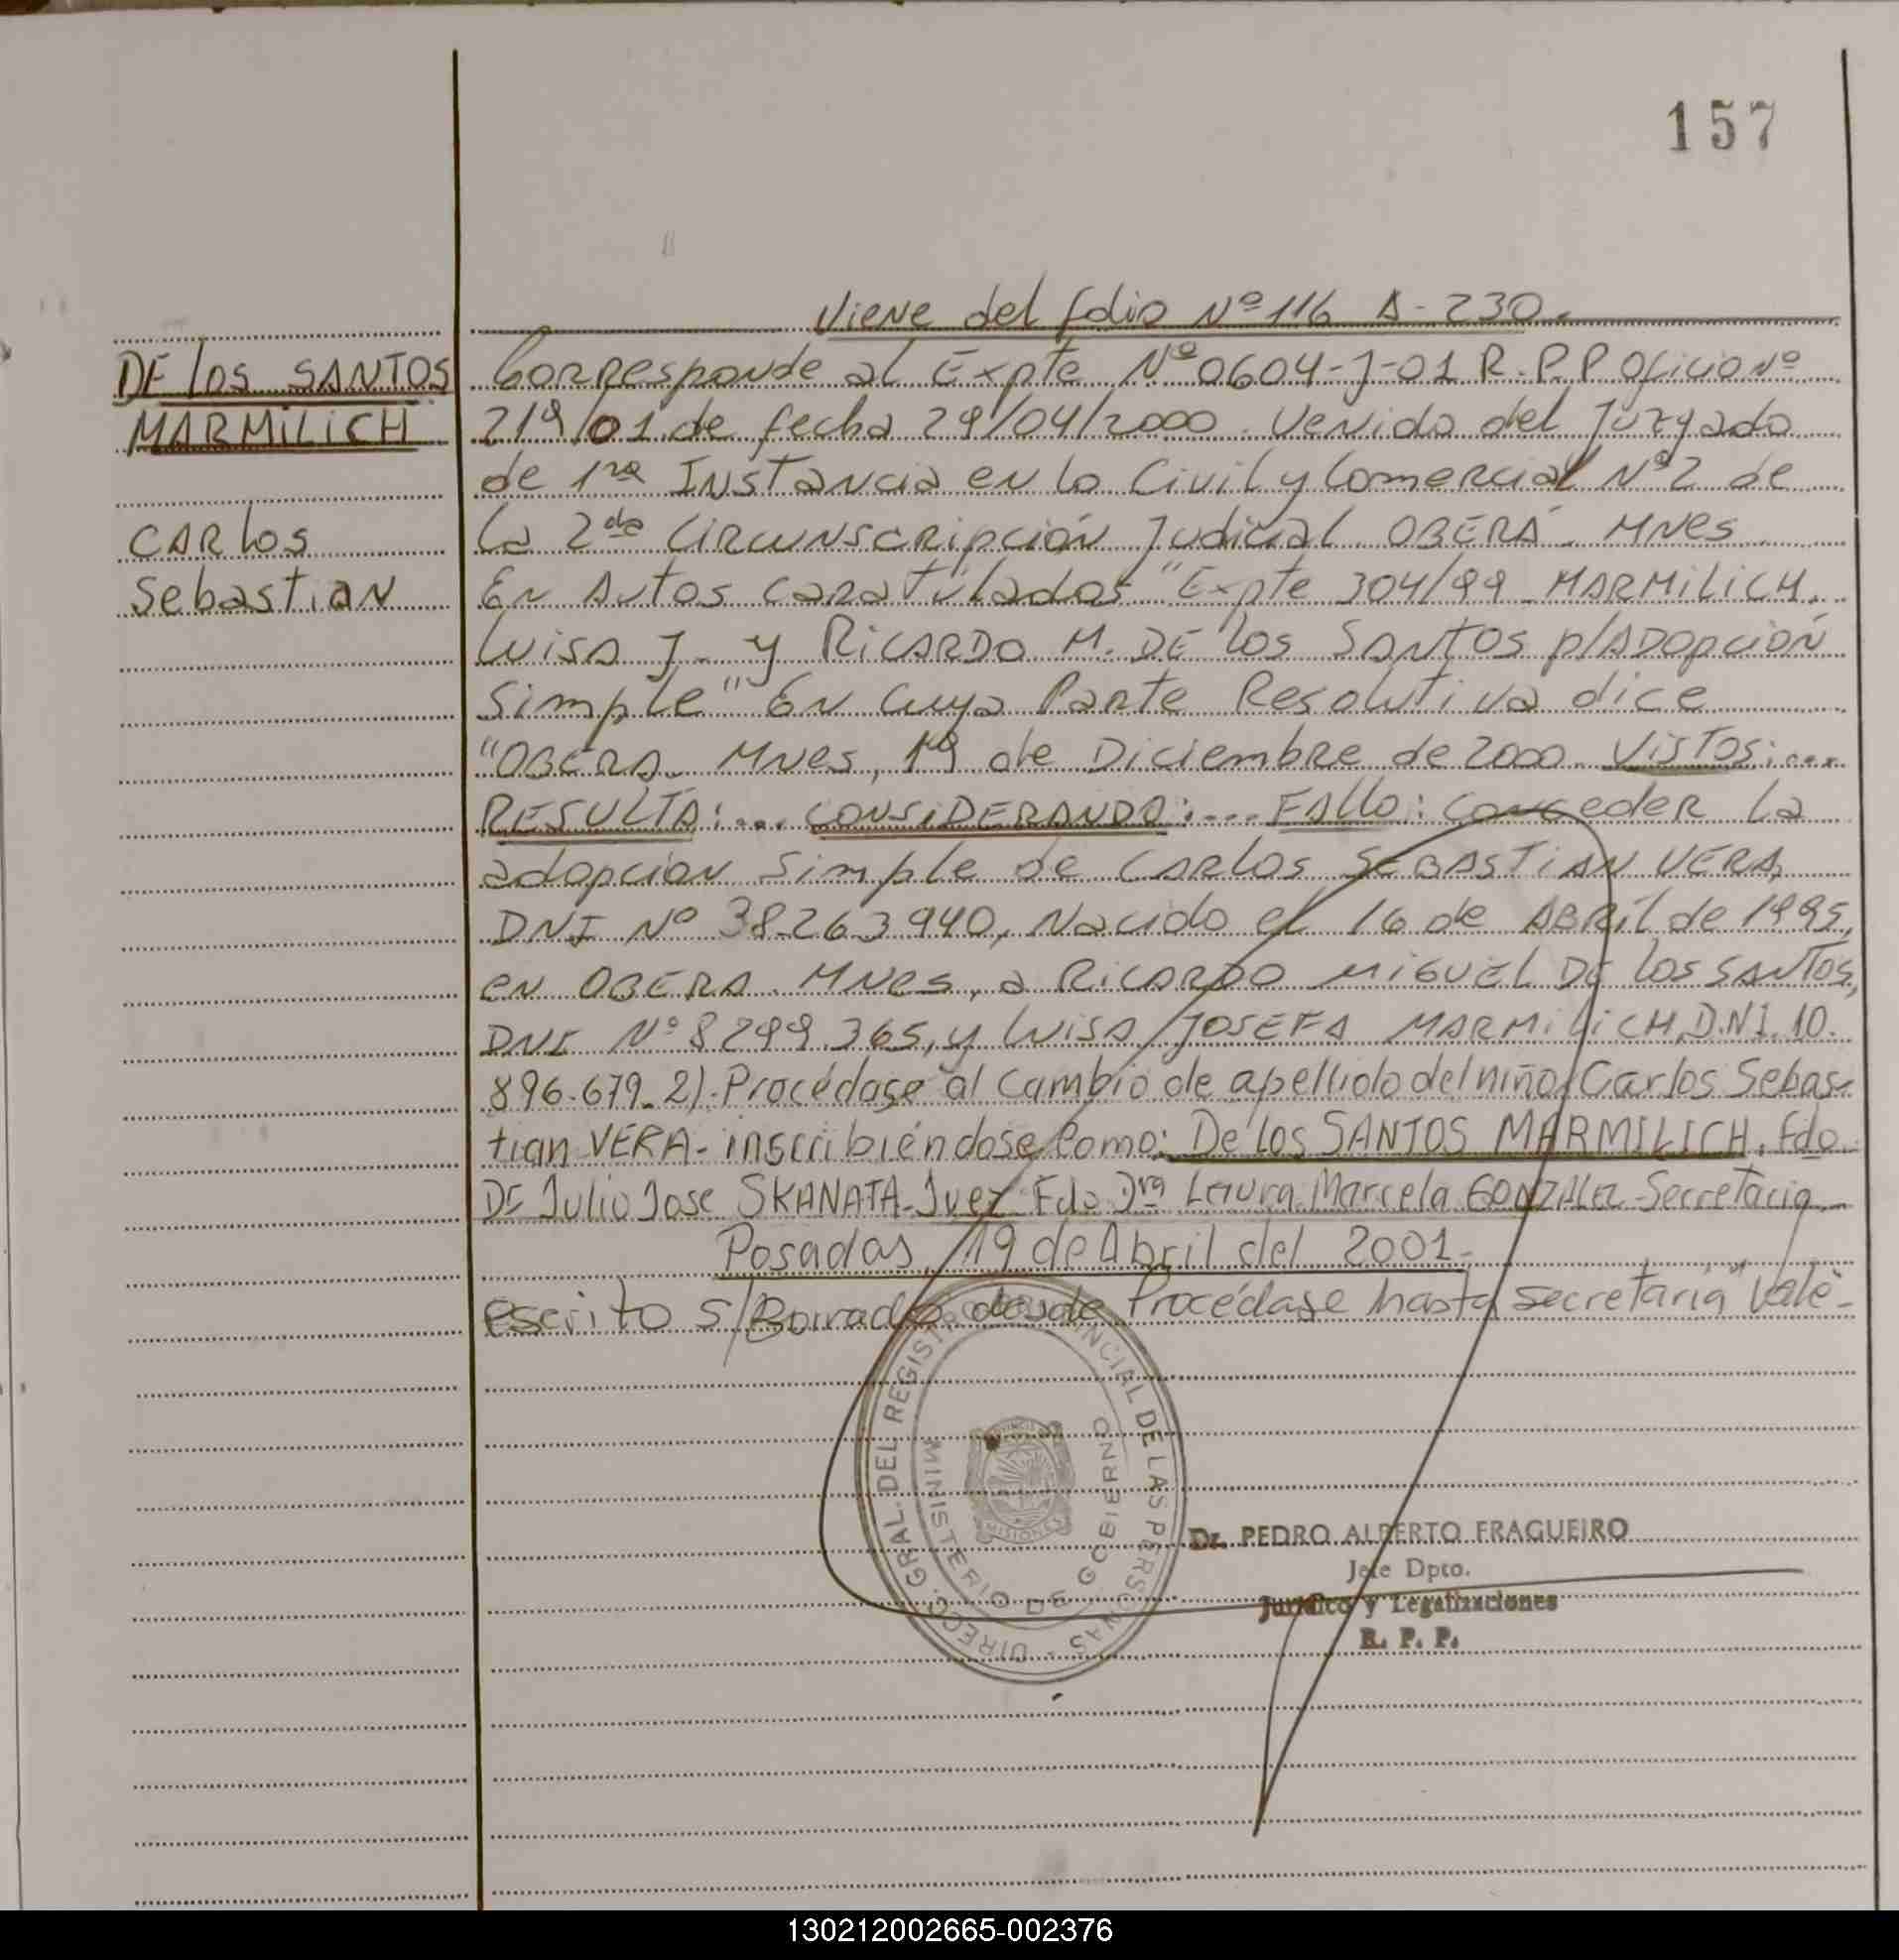 157
Viene del folio Nº 116 A-230.
DE los SANTOS
MARMILICH
CARLOS
Sebastian
Corresponde al Expte Nº 0604-J-01 R.P.P Oficio Nº
219/01 de fecha 29/04/2000. Venido del Juzgado
de 1ra Instancia en lo Civil y Comercial Nº 2 de
la 2da Circunscripción Judicial. OBERÁ. MNes
En Autos caratulados "Expte 304/99 MARMILICH.
Luisa J. y RICARDO M. DE los SANTOS p/ADOPCIÓN
simple" En cuya Parte Resolutiva dice
"OBERA. MNes, 19 de Diciembre de 2000. VISTOS:...
RESULTA:... CONSIDERANDO:... FALLO: conceder la
adopcion simple de CARLOS SEBASTIAN VERA,
DNI Nº 38263940, Nacido el 16 de ABRIL de 1995,
en OBERA. MNes, a RICARDO MIGUEL DE los SANTOS,
DNI Nº 8299.365, y LUISA JOSEFA MARMILICH, D.N.I. 10.
896.679. 2). Procédase al cambio de apellido del niño Carlos Sebas-
tian VERA- inscribiéndose como: De los SANTOS MARMILICH. Fdo.
Dr Julio Jose SKANATA-Juez-Fdo Dra Laura Marcela GONZALEZ-Secretaria
Posadas, 19 de Abril del 2001.
escrito s/Borrado desde Procédase hasta secretaría" Vale-
DIRECC. GRAL. DEL REGISTRO PROVINCIAL DE LAS PERSONAS
MINISTERIO DE GOBIERNO
PROVINCIA
MISIONES
Dr. PEDRO ALBERTO FRAGUEIRO
Jefe Dpto.
Jurídico y Legalizaciones
R. P. P.
130212002665-002376